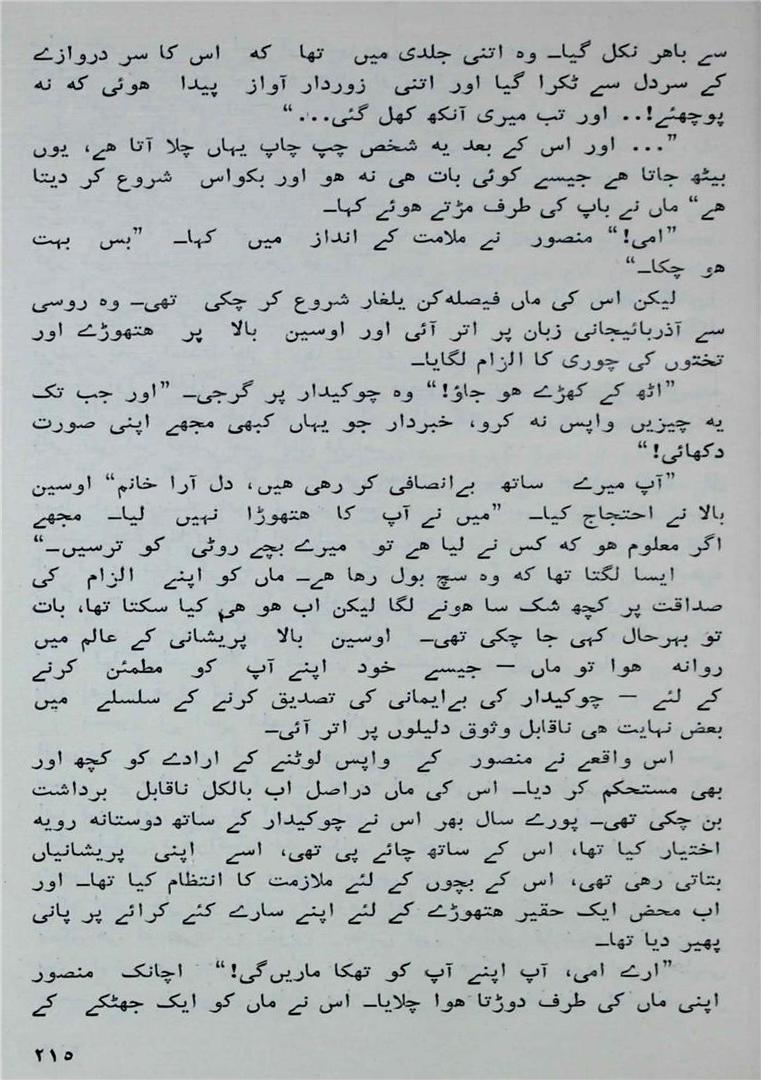 سے باهر نکل گیا۔ وہ اتنی جلدی میں تھا که اس کا سر دروازے
کے سردل سے ٹکرا گیا اور اتنی زوردار آواز پیدا ہوئی که نه
پوچھئے!.. اور تب میری آنکھ کھل گئی...“
”... اور اس کے بعد یه شخص چپ چاپ یہاں چلا آتا ہے، یوں
بیٹھ جاتا ہے جیسے کوئی بات ہی نه ہو اور بکواس شروع کر دیتا
ہے“ ماں نے باپ کی طرف مڑتے ہوئے کہا۔
”امی!“ منصور نے ملامت کے انداز میں کہا۔ ”بس بہت
ہو چکا۔“
لیکن اس کی ماں فیصله کن یلغار شروع کر چکی تھی۔ وہ روسی
سے آذربائیجانی زبان پر اتر آئی اور اوسین بالا پر ہتھوڑے اور
تختوں کی چوری کا الزام لگایا۔
”اٹھ کے کھڑے ہو جاؤ!“ وہ چوکیدار پر گرجی۔ ”اور جب تک
یه چیزیں واپس نه کرو، خبردار جو یہاں کبھی مجھے اپنی صورت
دکھائی!“
”آپ میرے ساتھ بےانصافی کر رہی ہیں، دل آرا خانم“ اوسین
بالا نے احتجاج کیا۔ ”میں نے آپ کا ہتھوڑا نہیں لیا۔ مجھے
اگر معلوم ہو که کس نے لیا ہے تو میرے بچے روٹی کو ترسیں۔“
ایسا لگتا تھا که وہ سچ بول رہا ہے۔ ماں کو اپنے الزام کی
صداقت پر کچھ شک سا ہونے لگا لیکن اب ہو ہی کیا سکتا تھا، بات
تو بہرحال کہی جا چکی تھی۔ اوسین بالا پریشانی کے عالم میں
روانه ہوا تو ماں — جیسے خود اپنے آپ کو مطمئن کرنے
کے لئے — چوکیدار کی بےایمانی کی تصدیق کرنے کے سلسلے میں
بعض نہایت ہی ناقابل وثوق دلیلوں پر اتر آئی۔
اس واقعے نے منصور کے واپس لوٹنے کے ارادے کو کچھ اور
بھی مستحکم کر دیا۔ اس کی ماں دراصل اب بالکل ناقابل برداشت
بن چکی تھی۔ پورے سال بھر اس نے چوکیدار کے ساتھ دوستانه رویه
اختیار کیا تھا، اس کے ساتھ چائے پی تھی، اسے اپنی پریشانیاں
بتاتی رہی تھی، اس کے بچوں کے لئے ملازمت کا انتظام کیا تھا۔ اور
اب محض ایک حقیر ہتھوڑے کے لئے اپنے سارے کئے کرائے پر پانی
پھیر دیا تھا۔
”ارے امی، آپ اپنے آپ کو تھکا ماریں گی!“ اچانک منصور
اپنی ماں کی طرف دوڑتا ہوا چلایا۔ اس نے ماں کو ایک جھٹکے کے
۲۱۵